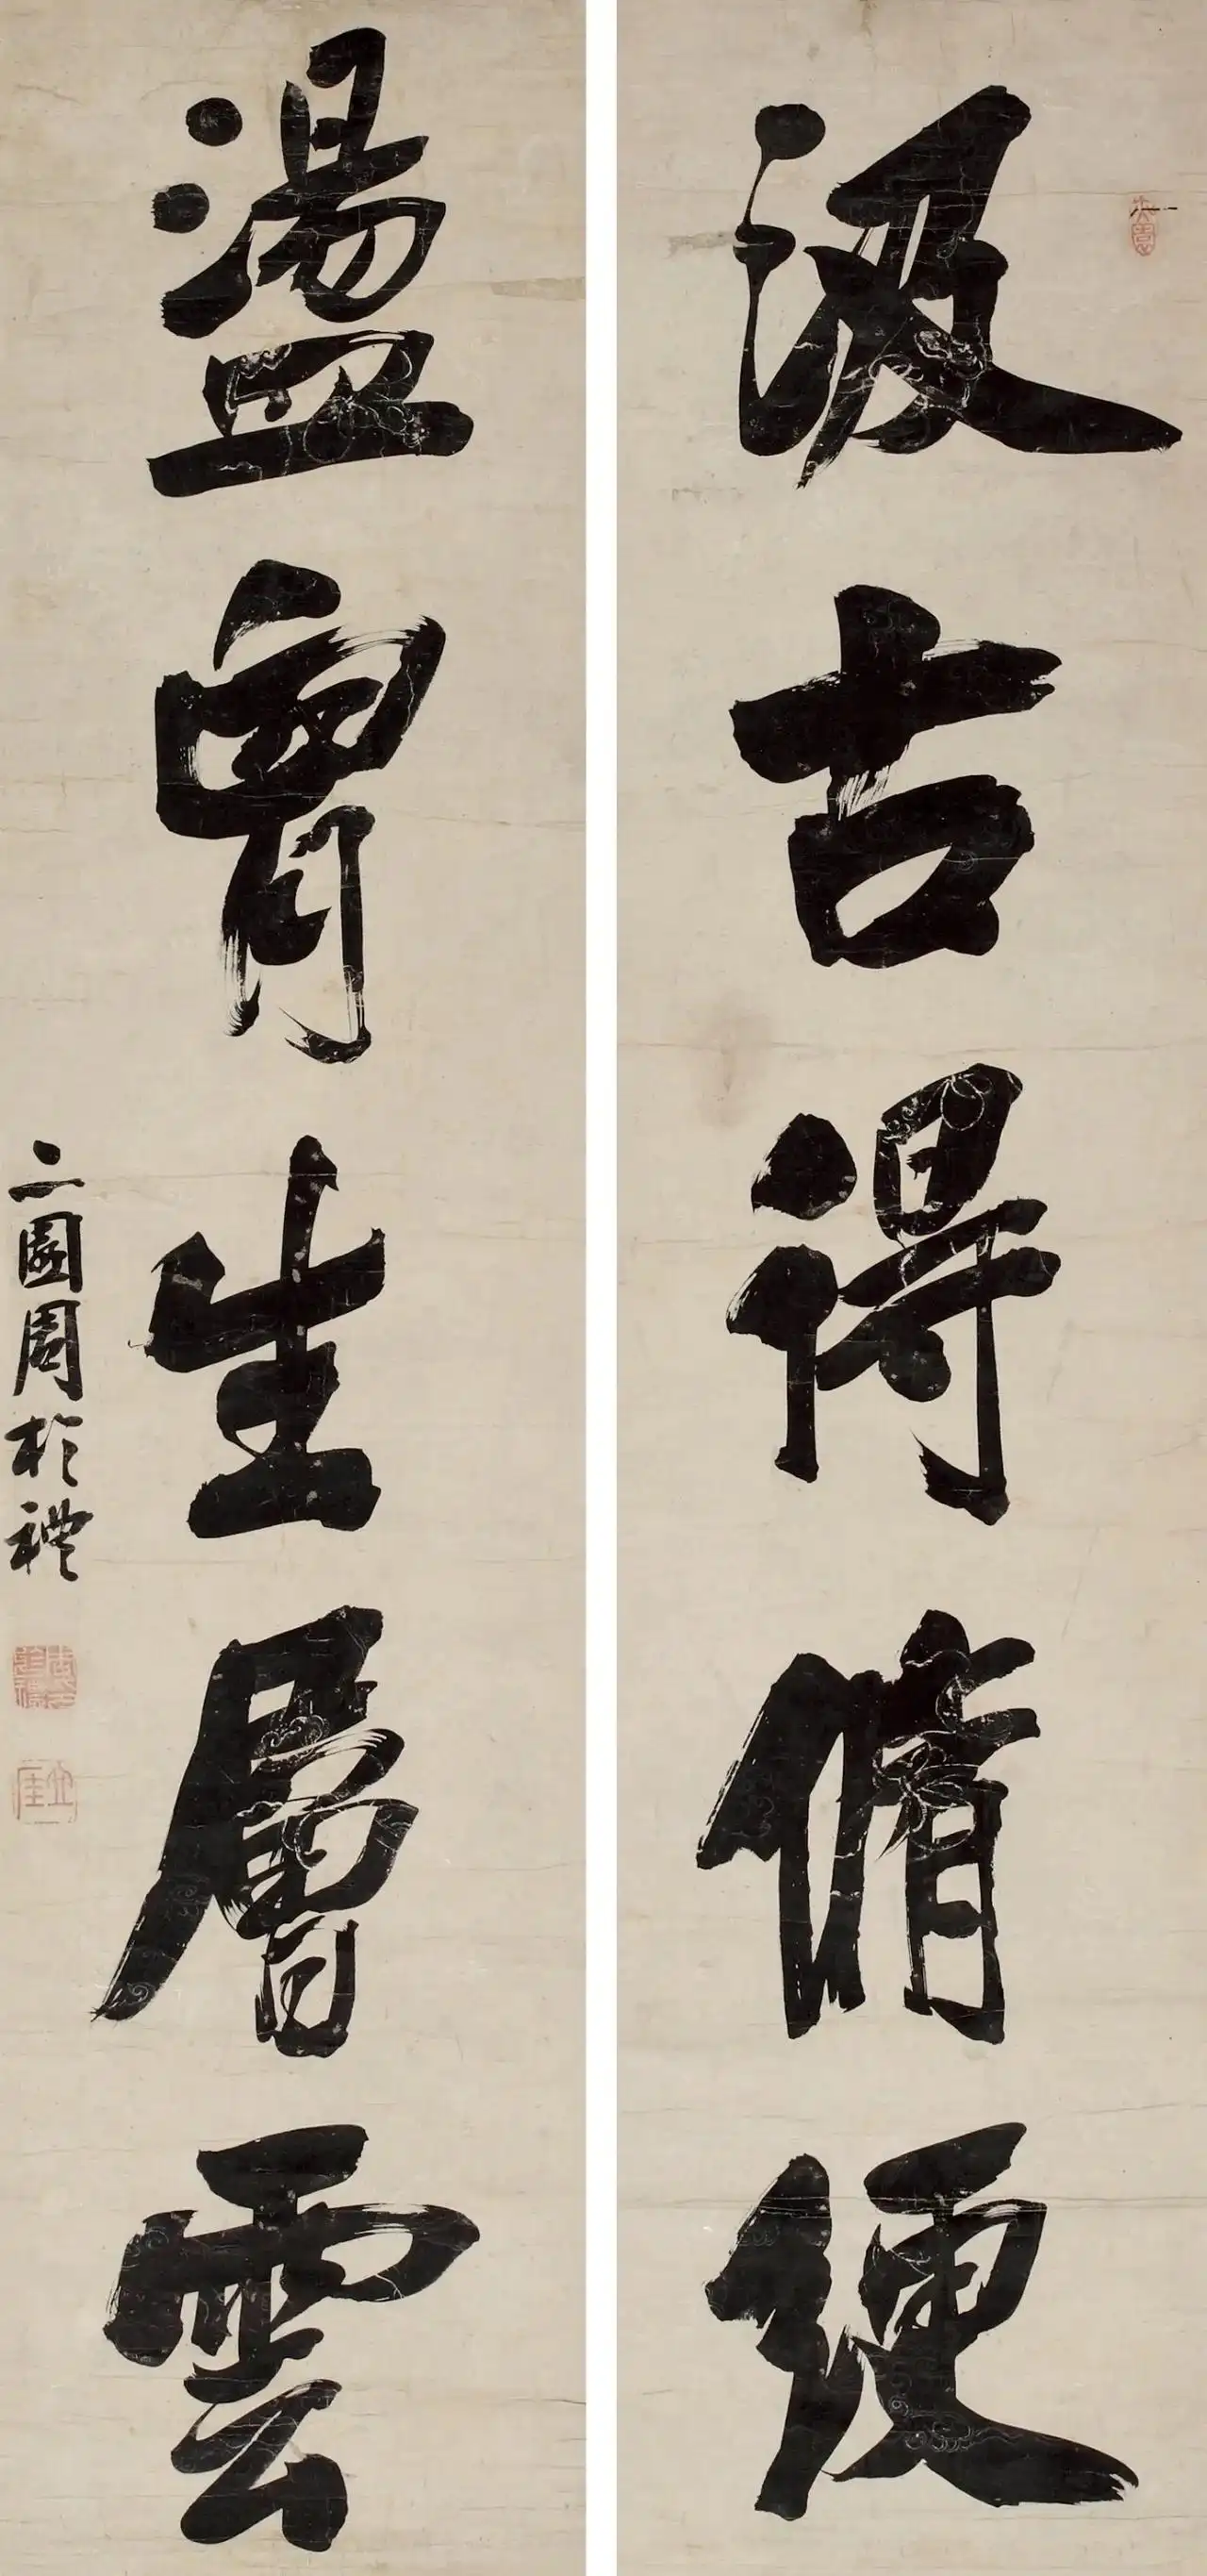 汲古得脩綆
盪胷生層雲
二園周於禮